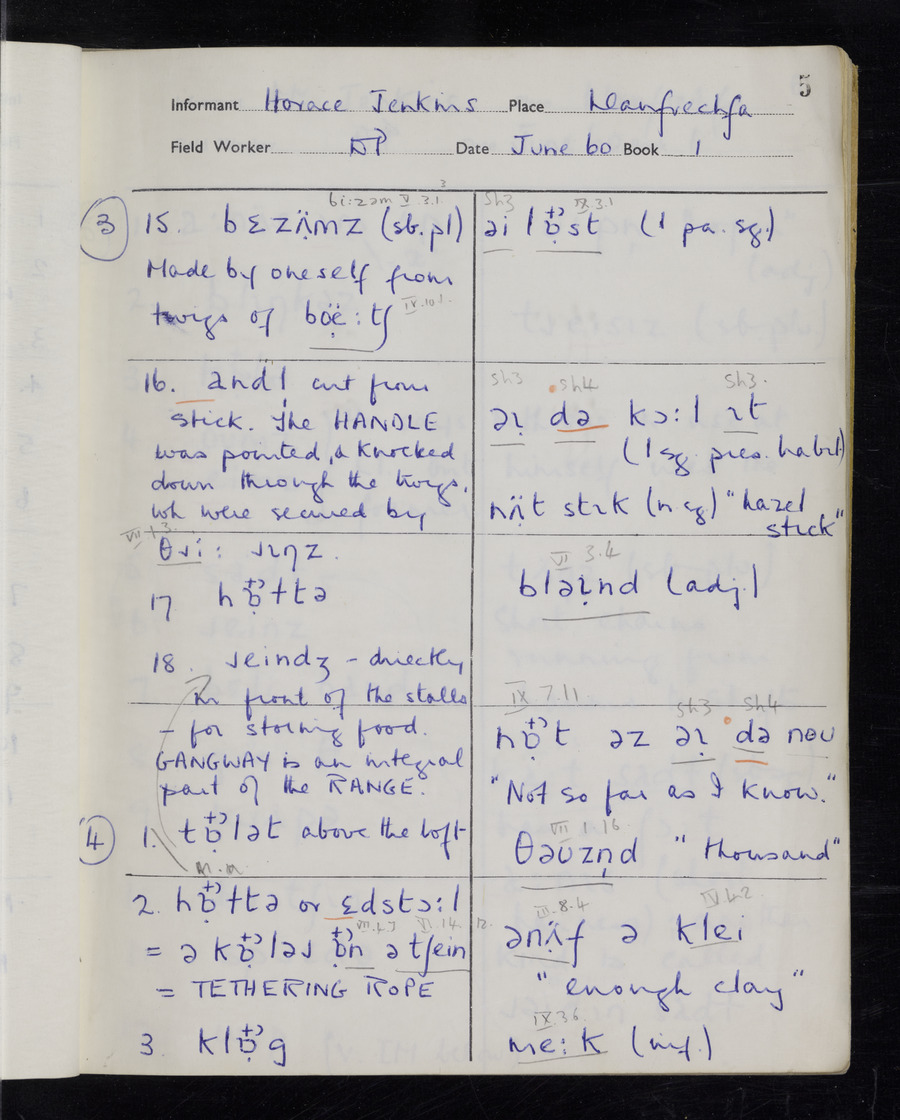 5
Informant Horace Jenkins Place Llanfrechfa
Field Worker DP Date June 60 Book 1
bi:zəm V 3.1.
3 15. bɛzʌ̈mz (sb. pl)
Made by oneself from
twigs of boë:tʃ IV.10.1.
16. andl cut from
stick. The HANDLE
was pointed, & knocked
down through the twigs,
wh were secured by
VII.1.3
θɹi: ɹɪŋz.
17 hɒ̣ttə
18. ɹeindʒ – directly
in front of the stalls
– for storing food.
GANGWAY is an integral
part of the RANGE.
4 1. tɒ̣lət above the loft
n.a.
2. hɒ̣ttə or ɛdstɔ:l
= ə kɒ̣ləɹ ɒ̣n ə tʃein
= TETHERING ROPE
3. klɒ̣g
Sh3 IX.3.1
əi lɒ̣st (1 pa. sg.)
Sh3 Sh4 Sh3.
əɪ̣ də kɔ:l ɪt
(1 sg. pres. habit)
nʌ̈t stɪk (n sg) "hazel
stick"
VI 3.4
bləɪ̣nd (adj.)
IX 7.11. Sh3 Sh4
nɒ̣t əz əɪ̣ də nəu
"Not so far as I know."
VII 1.16
θəʊzn̩d "thousand"
III.8.4 IV.4.2
ənʌ̈f ə klei
"enough clay"
IX 3.6.
me:k (inf.)